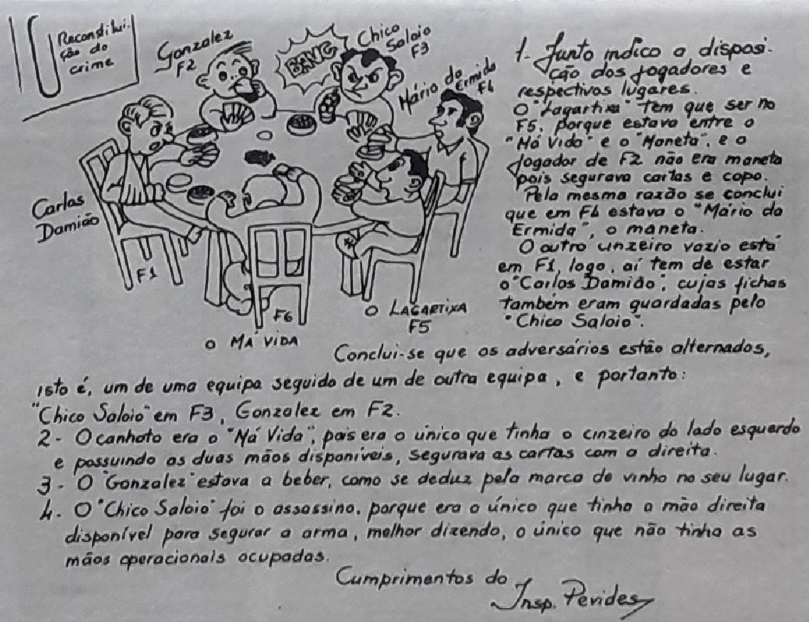 Reconstitui-
ção do
crime
Gonzalez
F2
BANG
Chico
Saloio
F3
Mário da
Ermida
F4
Carlos
Damião
F1
F6
O LAGARTIXA
F5
O MÁ VIDA
1- Junto indico a disposi-
ção dos jogadores e
respectivos lugares.
O "Lagartixa" tem que ser no
F5, porque estava entre o
"Má Vida" e o "Maneta", e o
jogador de F2 não era maneta
pois segurava cartas e copo.
Pela mesma razão se conclui
que em F4 estava o "Mário da
Ermida", o maneta.
O outro cinzeiro vazio está
em F1, logo, aí tem de estar
o "Carlos Damião", cujas fichas
também eram guardadas pelo
"Chico Saloio".
Conclui-se que os adversários estão alternados,
isto é, um de uma equipa seguido de um de outra equipa, e portanto:
"Chico Saloio" em F3, Gonzalez em F2.
2- O canhoto era o "Má Vida", pois era o único que tinha o cinzeiro do lado esquerdo
e possuindo as duas mãos disponíveis, segurava as cartas com a direita.
3- O "Gonzalez" estava a beber, como se deduz pela marca de vinho no seu lugar.
4- O "Chico Saloio" foi o assassino, porque era o único que tinha a mão direita
disponível para segurar a arma, melhor dizendo, o único que não tinha as
mãos operacionais ocupadas.
Cumprimentos do
Insp. Pevides